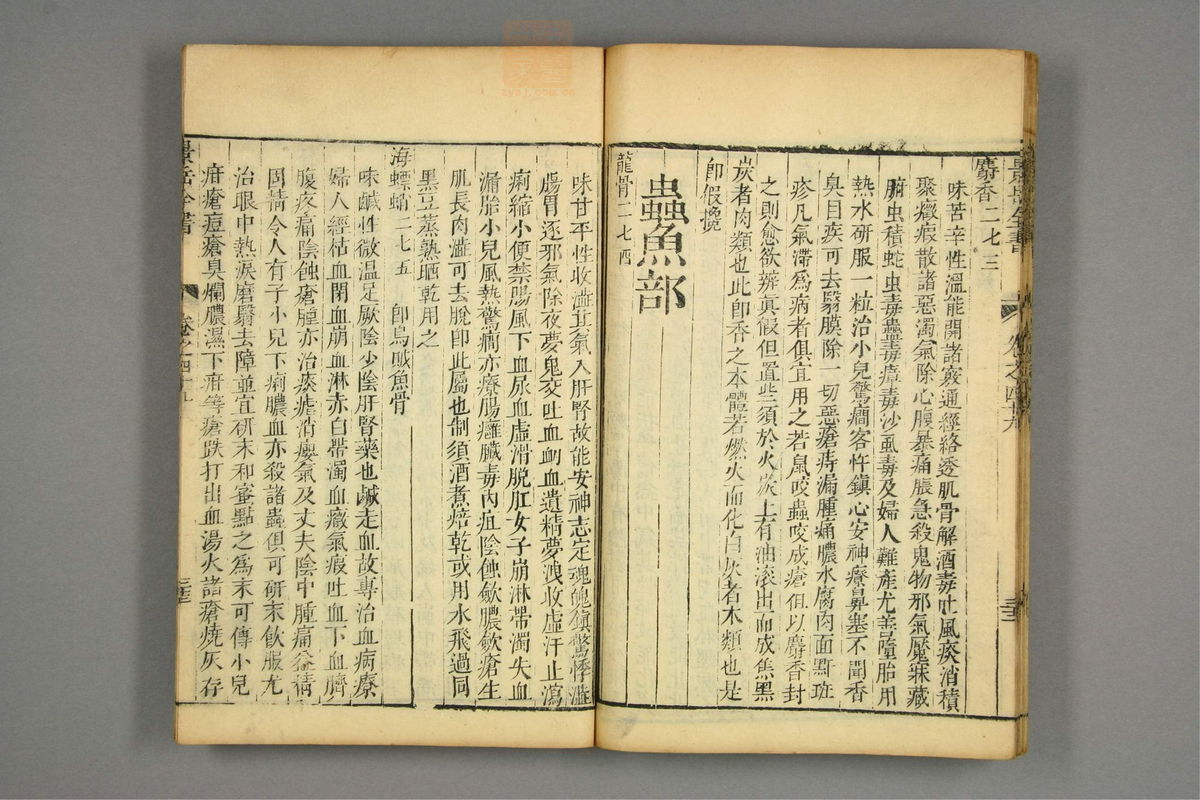 景岳全書
卷之四十九
麝香二七三
味苦辛性溫能開諸竅通經絡透肌骨解酒毒吐風痰消積
聚癥瘕散諸惡濁氣除心腹暴痛脹急殺鬼物邪氣魘寐藏
腑虫積蛇虫毒蠱毒瘴毒沙虱毒及婦人難產尤善墮胎用
熱水研服一粒治小兒驚癎客忤鎮心安神療鼻塞不聞香
臭目疾可去翳膜除一切惡瘡痔漏腫痛膿水腐肉面䵟斑
疹凡氣滯爲病者俱宜用之若鼠咬蟲咬成瘡但以麝香封
之則愈欲辨真假但置些須於火炭上有油滾出而成焦黑
炭者肉類也此卽香之本體若燃火而化白灰者木類也是
卽假攙
蟲魚部
龍骨二七四
味甘平性收澁其氣入肝腎故能安神志定魂魄鎮驚悸澁
腸胃逐邪氣除夜夢鬼交吐血衂血遺精夢洩收虛汗止瀉
痢縮小便禁腸風下血尿血虛滑脫肛女子崩淋帶濁失血
漏胎小兒風熱驚癇亦療腸癰臟毒內疽陰蝕歛膿歛瘡生
肌長肉澁可去脫卽此屬也制須酒煮焙乾或用水飛過同
黑豆蒸熟晒乾用之
海螵蛸二七五 卽烏賊魚骨
味鹹性微溫足厥陰少陰肝腎藥也鹹走血故專治血病療
婦人經枯血閉血崩血淋赤白帶濁血癥氣瘕吐血下血臍
腹疼痛陰蝕瘡腫亦治痰瘧消癭氣及丈夫陰中腫痛益精
固精令人有子小兒下痢膿血亦殺諸蟲俱可研末飲服尤
治眼中熱淚磨翳去障並宜研末和蜜點之爲末可傳小兒
疳瘡痘瘡臭爛膿濕下疳等瘡跌打出血湯火諸瘡燒灰存
景岳全書
卷之四十九